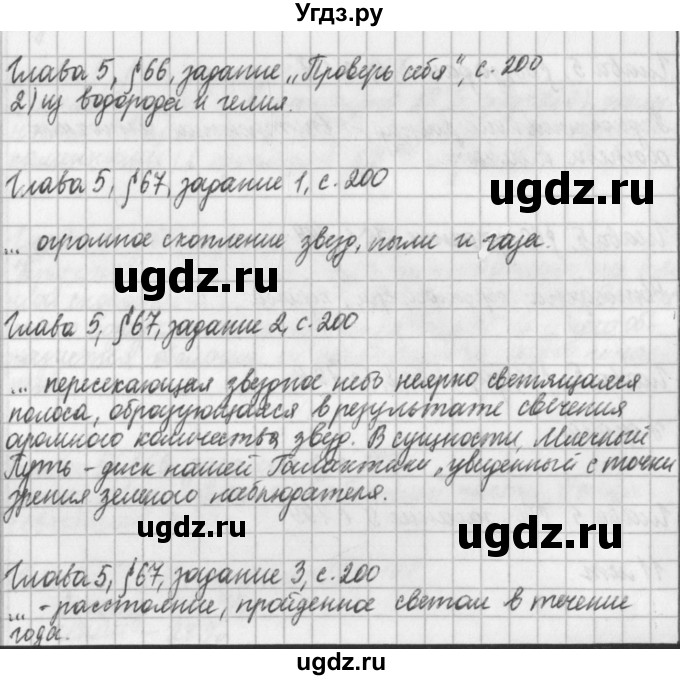 Угдз.ру
Глава 5, §66, задание „Проверь себя", с. 200
2) из водорода и гелия.
Глава 5, §67, задание 1, с. 200
ugdz.ru
... огромное скопление звезд, пыли и газа.
ugdz.ru
Глава 5, §67, задание 2, с. 200
... пересекающая звездное небо неярко светящаяся
полоса, образующаяся в результате свечения
огромного количества звезд. В сущности, Млечный
Путь – диск нашей Галактики, увиденный с точки
зрения земного наблюдателя.
ugdz.ru
ugdz.ru
Глава 5, §67, задание 3, с. 200
... - расстояние, пройденное светом в течение
года.
ugdz.ru